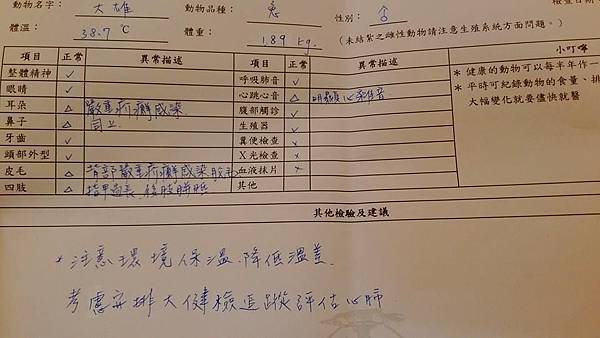 動物名字： 大雄 動物品種： 兔 性別： ♂ 檢查日期
體溫： 38.7 ℃ 體重： 1.89 kg. （未結紮之雌性動物請注意生殖系統方面問題。）
項目 正常 異常描述 項目 正常 異常描述 小叮嚀
整體精神 ✓ 呼吸肺音 ✓ * 健康的動物可以每半年作一
眼睛 ✓ 心跳心音 △ 明顯心雜音 * 平時可紀錄動物的食量、排
耳朵 △ 嚴重疥癬感染 腹部觸診 ✓ 大幅變化就要儘快就醫
鼻子 △ 同上 生殖器 ✓
牙齒 ✓ 糞便檢查 ×
頭部外型 ✓ X光檢查 ×
皮毛 △ 背部嚴重疥癬感染 血液抹片 ×
四肢 △ 指甲過長、後肢腳 其他
其他檢驗及建議
* 注意環境保溫、降低溫差
考慮安排大健檢追蹤評估心肺